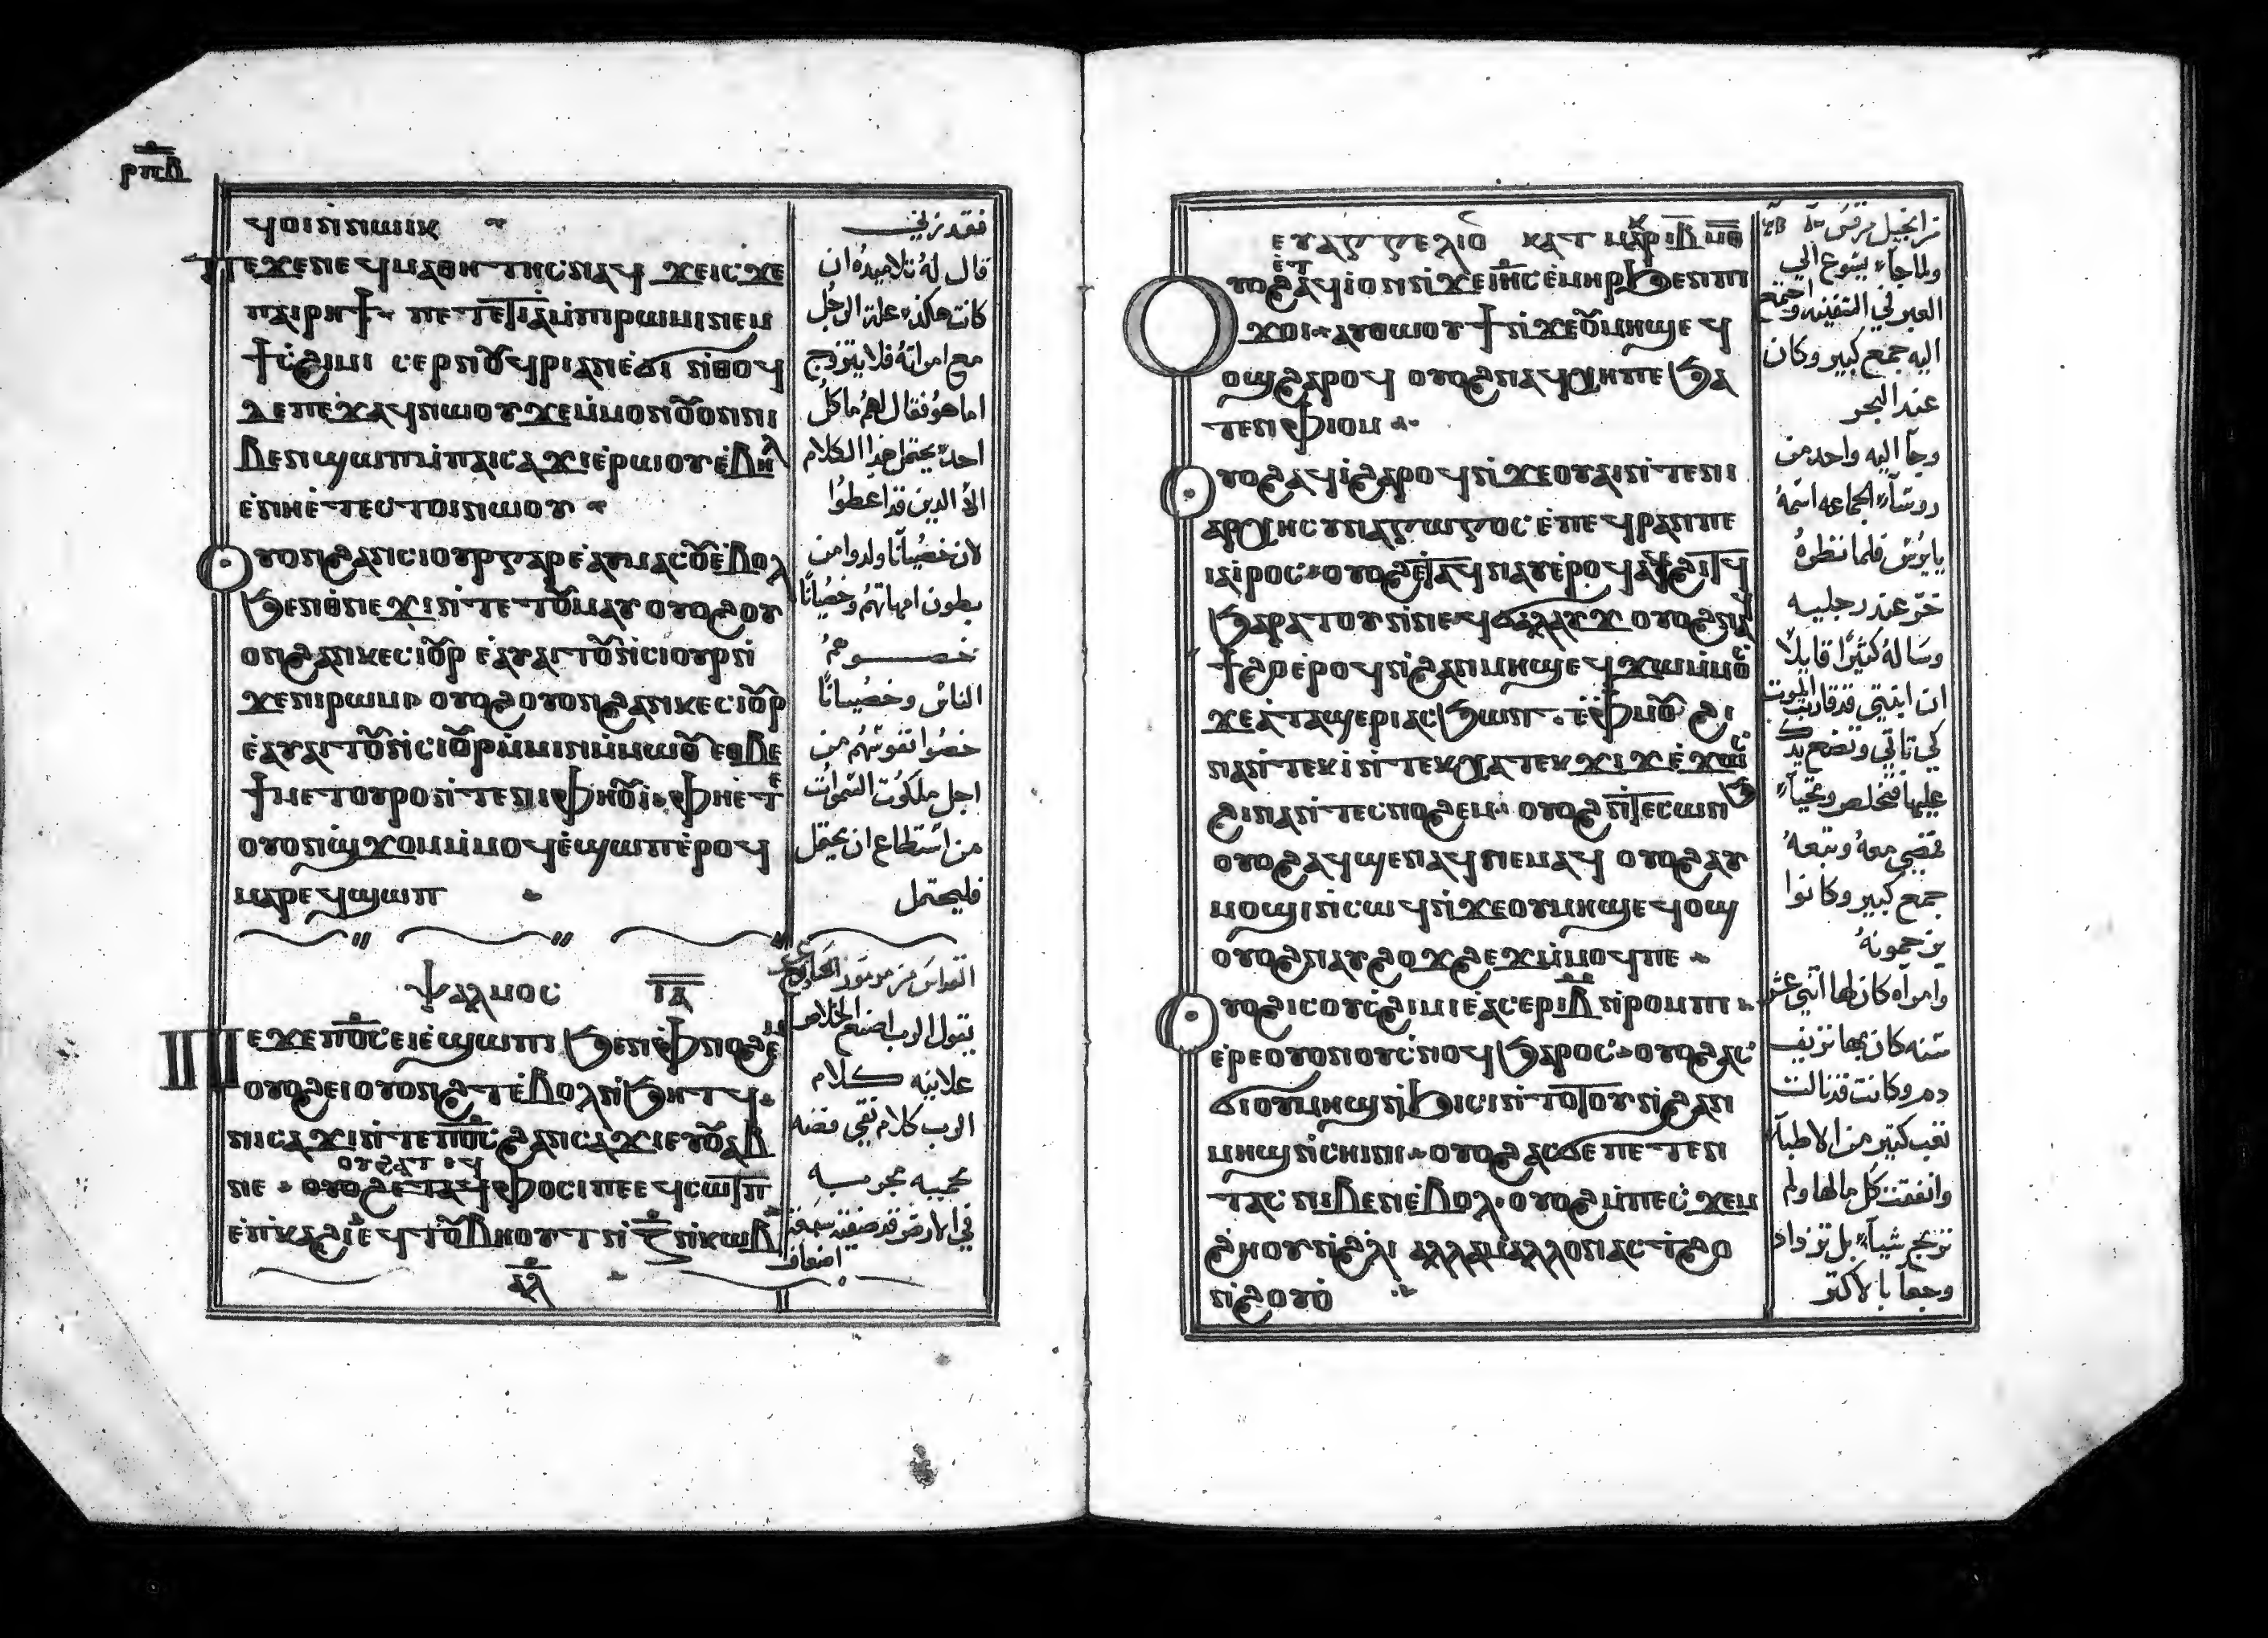 ⲣⲡⲃ
ϥⲟⲓ ⲛ̀ⲛⲱⲓⲕ
ⲡⲉϫⲉ ⲛⲉϥⲙⲁⲑⲏⲧⲏⲥ ⲛⲁϥ ϫⲉ ⲓⲥϫⲉ
ⲡⲁⲓⲣⲏϯ ⲡⲉ ⲧⲉⲧⲓⲁ̀ ⲙ̀ⲡⲓⲣⲱⲙⲓ ⲛⲉⲙ
ϯⲥ̀ϩⲓⲙⲓ ⲥⲉⲣⲛⲟϥⲣⲓ ⲁⲛ ⲉ̀ϭⲓ ⲛ̀ⲑⲟϥ
ⲇⲉ ⲡⲉϫⲁϥ ⲛⲱⲟⲩ ϫⲉ ⲙ̀ⲙⲟⲛ ⲟⲩⲟⲛ ⲛⲓ
ⲃⲉⲛ ϣⲱⲡ ⲙ̀ⲡⲁⲓⲥⲁϫⲓ ⲉ̀ⲣⲱⲟⲩ ⲉ̀ⲃⲏⲗ
ⲉ̀ⲛⲏ ⲉ̀ⲧⲉⲥⲧⲟⲓ ⲛⲱⲟⲩ
ⲟⲩⲟⲛ ϩⲁⲛⲥⲓⲟⲩⲣ ⲅⲁⲣ ⲉ̀ⲁⲩⲙⲁⲥⲟⲩ ⲉ̀ⲃⲟⲗ
ϧⲉⲛ ⲑ̀ⲛⲉϫⲓ ⲛ̀ⲧⲉ ⲧⲟⲩⲙⲁⲩ ⲟⲩⲟϩ ⲟⲩ
ⲟⲛ ϩⲁⲛⲕⲉⲥⲓⲟⲩⲣ ⲉ̀ⲁⲩⲁⲓⲧⲟⲩ ⲛ̀ⲥⲓⲟⲩⲣ ⲛ̀
ϫⲉ ⲛⲓⲣⲱⲙⲓ ⲟⲩⲟϩ ⲟⲩⲟⲛ ϩⲁⲛⲕⲉⲥⲓⲟⲩⲣ
ⲉ̀ⲁⲩⲁⲓⲧⲟⲩ ⲛ̀ⲥⲓⲟⲩⲣ ⲙ̀ⲙⲓⲛ ⲙ̀ⲙⲱⲟⲩ ⲉⲑⲃⲉ
ϯⲙⲉⲧⲟⲩⲣⲟ ⲛ̀ⲧⲉ ⲛⲓⲫⲏⲟⲩⲓ̀ ⲫⲏ ⲉ̀ⲧⲉ
ⲟⲩⲟⲛ ⲛ̀ϣϫⲟⲙ ⲙ̀ⲙⲟϥ ⲉ̀ϣⲱⲡ ⲉ̀ⲣⲟϥ
ⲙⲁⲣⲉϥϣⲱⲡ
ⲯⲁⲗⲙⲟⲥ ⲓⲁ
ⲡⲉϫⲉ ⲡⲟ̅ⲥ̅ ⲉⲓⲉ̀ϣⲱⲡⲓ ϧⲉⲛ ⲫ̀ⲛⲟϩⲉⲙ
ⲟⲩⲟϩ ⲉⲓⲟⲩⲟⲛϩⲧ ⲉ̀ⲃⲟⲗ ⲛ̀ϧⲏⲧϥ
ⲛⲓⲥⲁϫⲓ ⲛ̀ⲧⲉ ⲡⲟ̅ⲥ̅ ϩⲁⲛⲥⲁϫⲓ ⲉⲩⲟⲩⲁⲃ
ⲛⲉ ⲟⲩϩⲁⲧ ⲉϥⲫⲟⲥⲓ ⲡⲉ ⲉϥⲥⲱⲧⲡ
ⲉ̀ⲡ̀ⲕⲁϩⲓ ⲉ̀ϥⲧⲟⲩⲃⲏⲟⲩⲧ ⲛ̀ⲍ̅ ⲛ̀ⲕⲱⲃ
ⲁⲗ
فقد زني
قال له تلاميذه ان
كانت هكذا علة الرجل
مع امراته فلا يتزوج
اما هو فقال لهم ما كل
احد يحتمل هذا الكلام
الا الدين قد اعطوا
لان خصيانا ولدوا من
بطون امهاتهم وخصيانا
خصوهم
الناس وخصيانا
خصوا نفوسهم من
اجل ملكوت السموات
من استطاع ان يحتمل
فليحتمل
القداس من مزمور الحادي عشر
يقول الرب اصنع الخلاص
علانيه كلام
الرب كلام نقي فضه
محميه مجربه
في الارض قد صفيت سبعة
اضعاف
ⲉⲩⲁⲅⲅⲉⲗⲓⲟ ⲕⲁⲧ ⲙⲁⲣ
ⲟⲩⲟϩ ⲉ̀ⲧⲁϥⲓ̀ ⲟⲛ ⲛ̀ϫⲉ ⲓⲏ̅ⲥ̅ ⲉ̀ⲙⲏⲣ ϧⲉⲛ ⲡⲓ
ϫⲟⲓ ⲁⲩⲑⲱⲟⲩϯ ⲛ̀ϫⲉ ⲟⲩⲙⲏϣ ⲉϥ
ⲟϣ ϩⲁⲣⲟϥ ⲟⲩⲟϩ ⲛⲁϥⲭⲏ ⲡⲉ ϧⲁ
ⲧⲉⲛ ⲫⲓⲟⲙ
ⲟⲩⲟϩ ⲁϥⲓ̀ ϩⲁⲣⲟϥ ⲛ̀ϫⲉ ⲟⲩⲁⲓ ⲛ̀ⲧⲉ ⲛⲓ
ⲁⲣⲭⲏⲥⲩⲛⲁⲅⲱⲅⲟⲥ ⲉ̀ⲡⲉϥⲣⲁⲛ ⲡⲉ
ⲓⲁⲓ̀ⲣⲟⲥ ⲟⲩⲟϩ ⲉ̀ⲧⲁϥⲛⲁⲩ ⲉ̀ⲣⲟϥ ⲁϥϩⲓⲧϥ
ϧⲁⲣⲁⲧⲟⲩ ⲛ̀ⲛⲉϥϭⲁⲗⲁⲩϫ ⲟⲩⲟϩ ⲛⲁϥ
ϯϩⲟ ⲉ̀ⲣⲟϥ ⲛ̀ϩⲁⲛⲙⲏϣ ⲉϥϫⲱ ⲙ̀ⲙⲟⲥ
ϫⲉ ⲁ̀ ⲧⲁϣⲉⲣⲓ ⲁⲥϧⲱⲛⲧ ⲉ̀ⲫⲙⲟⲩ ϩⲓ
ⲛⲁ ⲛ̀ⲧⲉⲕⲓ̀ ⲛ̀ⲧⲉⲕⲭⲁ ⲧⲉⲕϫⲓϫ ⲉ̀ϫⲱⲥ
ϩⲓⲛⲁ ⲛ̀ⲧⲉⲥⲛⲟϩⲉⲙ ⲟⲩⲟϩ ⲛ̀ⲧⲉⲥⲱⲛϧ
ⲟⲩⲟϩ ⲁϥϣⲉⲛⲁϥ ⲛⲉⲙⲁϥ ⲟⲩⲟϩ ⲁⲩ
ⲙⲟϣⲓ ⲛ̀ⲥⲱϥ ⲛ̀ϫⲉ ⲟⲩⲙⲏϣ ⲉϥⲟϣ
ⲟⲩⲟϩ ⲛⲁⲩϩⲟϫϩⲉϫ ⲙ̀ⲙⲟϥ ⲡⲉ
ⲟⲩⲟϩ ⲓⲥ ⲟⲩⲥ̀ϩⲓⲙⲓ ⲉ̀ⲁⲥⲉⲣ ⲓⲃ̅ ⲛ̀ⲣⲟⲙⲡⲓ
ⲉ̀ⲣⲉ ⲟⲩⲟⲛ ⲟⲩⲥ̀ⲛⲟϥ ϧⲁⲣⲟⲥ ⲟⲩⲟϩ ⲁⲥ
ϭⲓ ⲟⲩⲙⲏϣ ⲛ̀ϧⲓⲥⲓ ⲛ̀ⲧⲟⲧⲟⲩ ⲛ̀ϩⲁⲛ
ⲙⲏϣ ⲛ̀ⲥⲏⲓⲛⲓ ⲟⲩⲟϩ ⲁⲥϭⲉ ⲡⲉⲧⲉⲛ
ⲧⲁⲥ ⲛⲓⲃⲉⲛ ⲉ̀ⲃⲟⲗ ⲟⲩⲟϩ ⲙ̀ⲡⲉⲥϫⲉⲙ
ϩⲏⲟⲩ ⲛ̀ϩⲗⲓ ⲁⲗⲗⲁ ⲙⲁⲗⲗⲟⲛ ⲁⲥϯϩⲟ
ⲛ̀ϩⲟⲩⲟ̀
من انجيل مرقس
ولما جاء يسوع الي
العبر في السفينه واجتمع
اليه جمع كبير وكان
عند البحر
وجآ اليه واحد من
روسآء الجماعه اسمه
يايرس فلما نظره
خر عند رجليه
وساله كثيرا قايلا
ان ابنتي قد قاربت الموت
كي تاتي وتضع يدك
عليها فتخلص وتحيآ
فمضي معه وتبعه
جمع كبير وكانوا
يزحمونه
وامرآه كان لها اثني عشر
سنه كان بها نزيف
دم وكانت قد نالت
تعب كتير من الاطبآء
وانفقت كل مالها ولم
تربح شيآء بل تزداد
وجعا بالاكتر